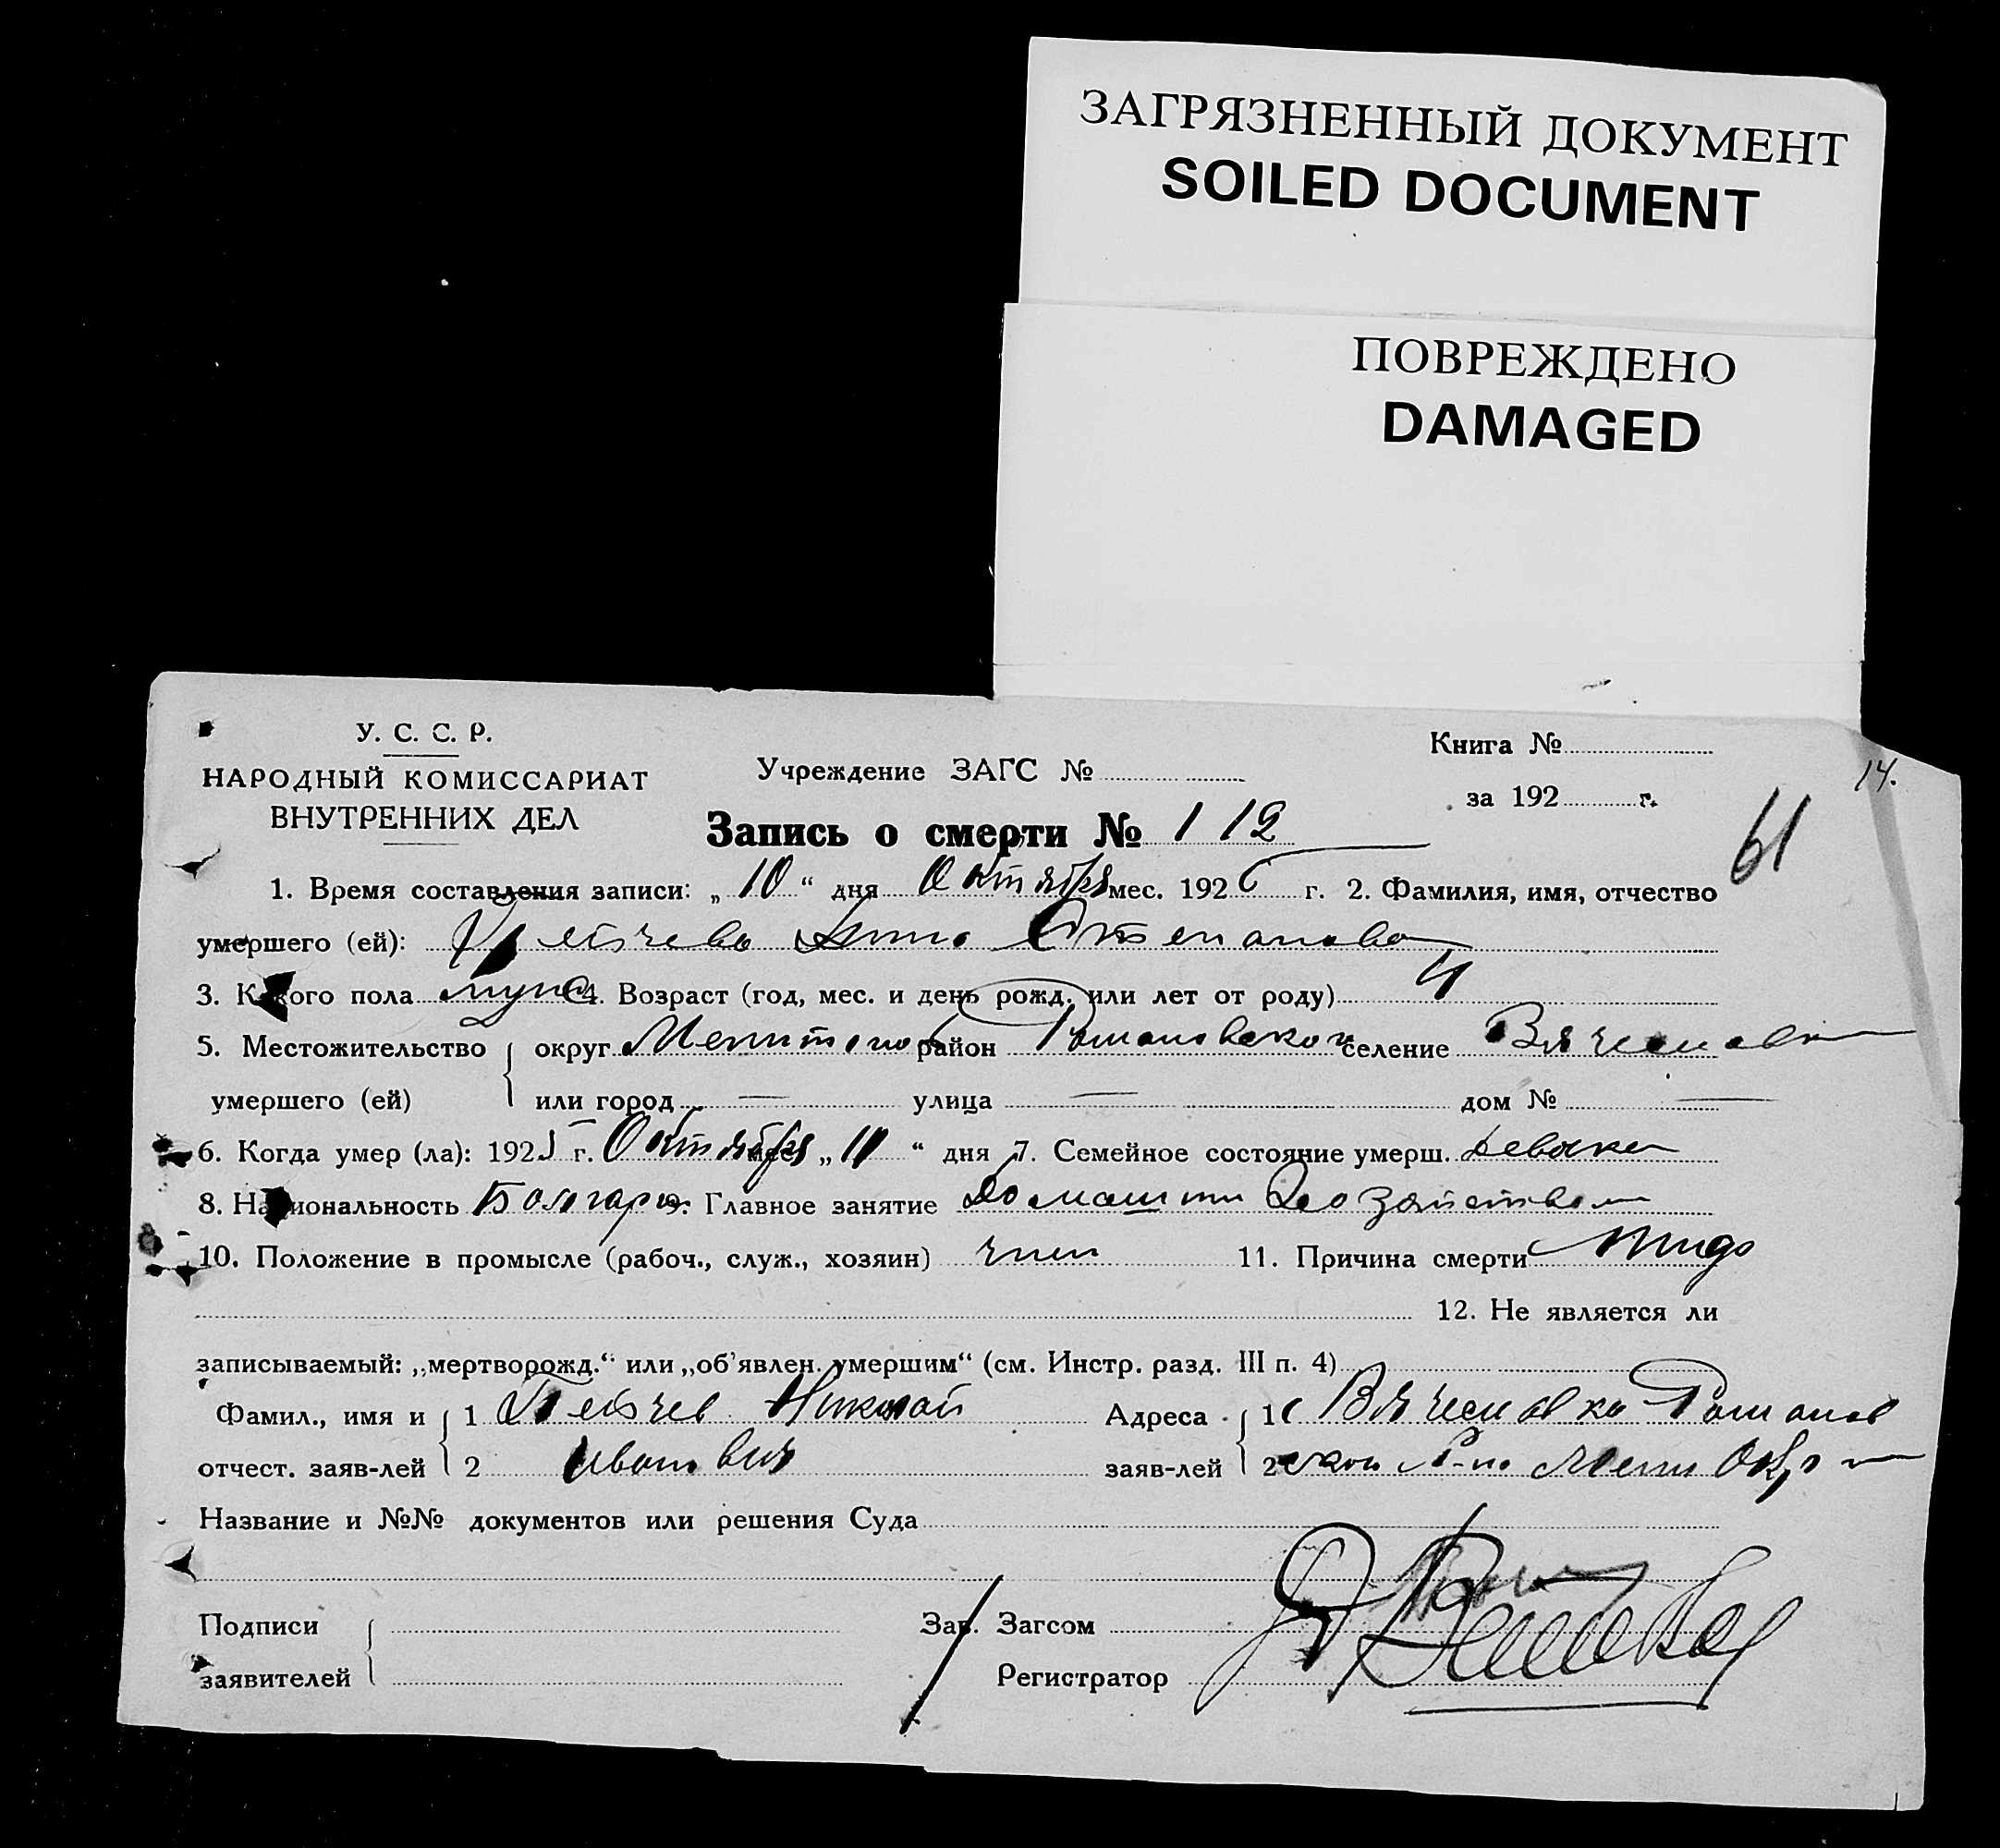 ЗАГРЯЗНЕННЫЙ ДОКУМЕНТ
SOILED DOCUMENT
ПОВРЕЖДЕНО
DAMAGED
У. С. С. Р.
НАРОДНЫЙ КОМИССАРИАТ
ВНУТРЕННИХ ДЕЛ
Учреждение ЗАГС №
Книга №
за 192 г.
14.
61
Запись о смерти № 112
1. Время составления записи: „10“ дня Октября мес. 192 г. 2. Фамилия, имя, отчество
умершего (ей):
3. Какого пола 4. Возраст (год, мес. и день рожд. или лет от роду)
5. Местожительство округ район Романовской селение Вячеславка
умершего (ей) или город — улица — дом № —
6. Когда умер (ла): 1925 г. Октября мес. „ “ дня 7. Семейное состояние умерш. девака
8. Национальность Болгары 9. Главное занятие
10. Положение в промысле (рабоч., служ., хозяин) член 11. Причина смерти
12. Не является ли
записываемый: „мертворожд.“ или „об’явлен. умершим“ (см. Инстр. разд. III п. 4)
Фамил., имя и 1 Пейчев Николай Адреса 1 с Вячеславка Романов
отчест. заяв-лей 2 заяв-лей 2 ской Р-на Мелит Окр
Название и №№ документов или решения Суда
Подписи Зав. Загсом
заявителей Регистратор